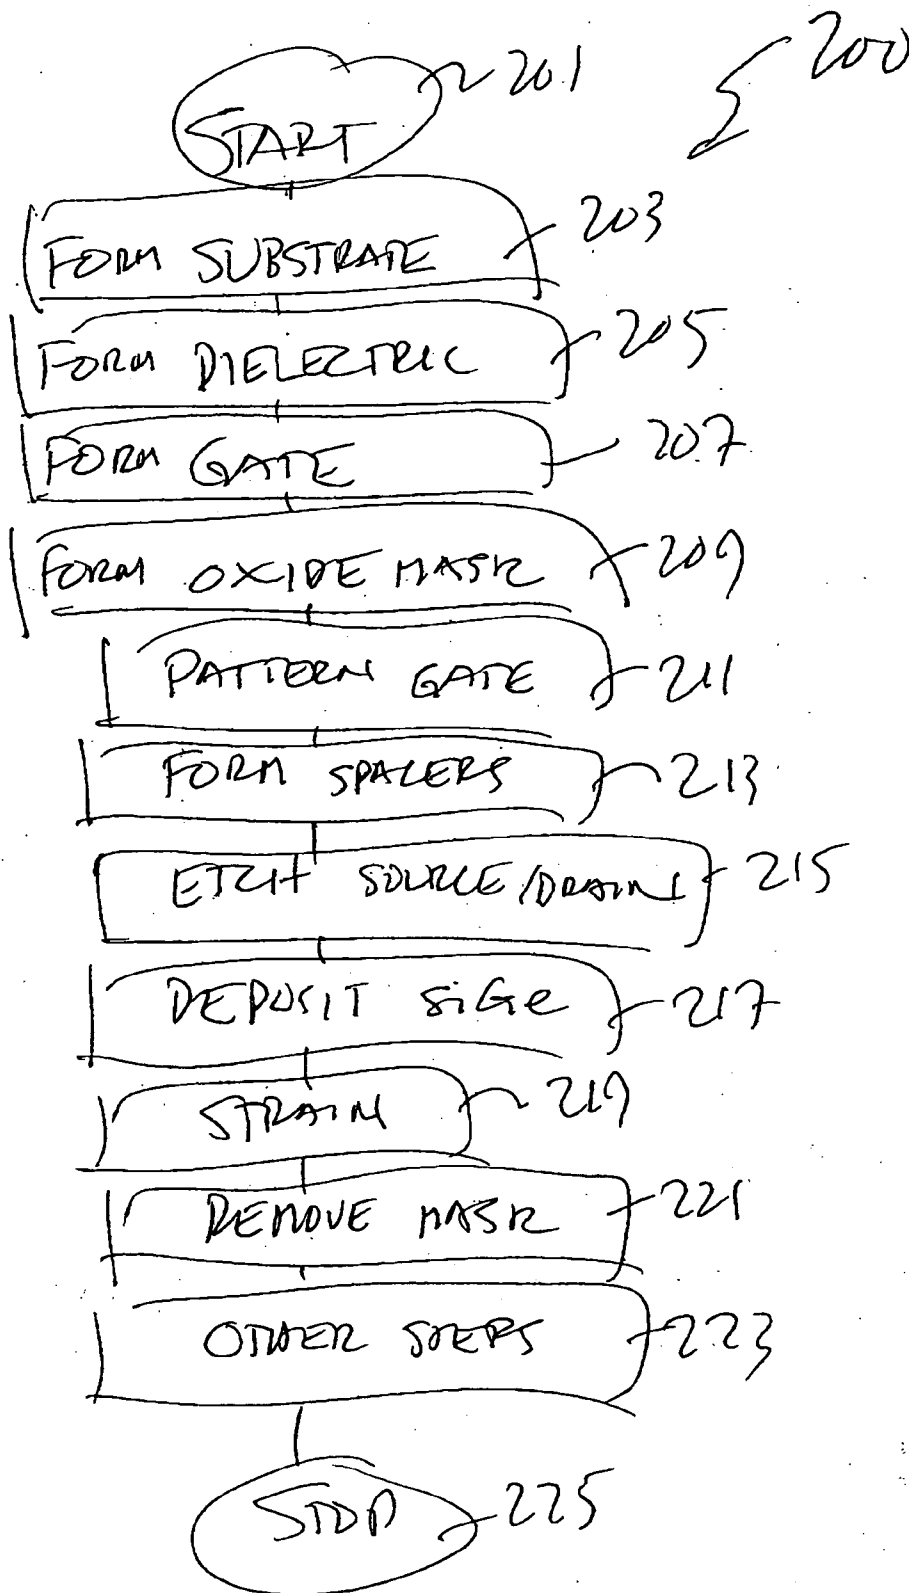 200
START 201
FORM SUBSTRATE 203
FORM DIELECTRIC 205
FORM GATE 207
FORM OXIDE MASK 209
PATTERN GATE 211
FORM SPACERS 213
ETCH SOURCE/DRAIN 215
DEPOSIT SiGe 217
STRAIN 219
REMOVE MASK 221
OTHER STEPS 223
STOP 225